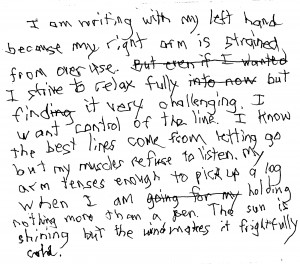 I am writing with my left hand
because my right arm is strained
from over use. But even if I wanted
I strive to relax fully into now but
finding it very challenging. I
want control of the line. I know
the best lines come from letting go
but my muscles refuse to listen. My
arm tenses enough to pick up a log
when I am going for my holding
nothing more than a pen. The sun is
shining but the wind makes it frightfully
cold.